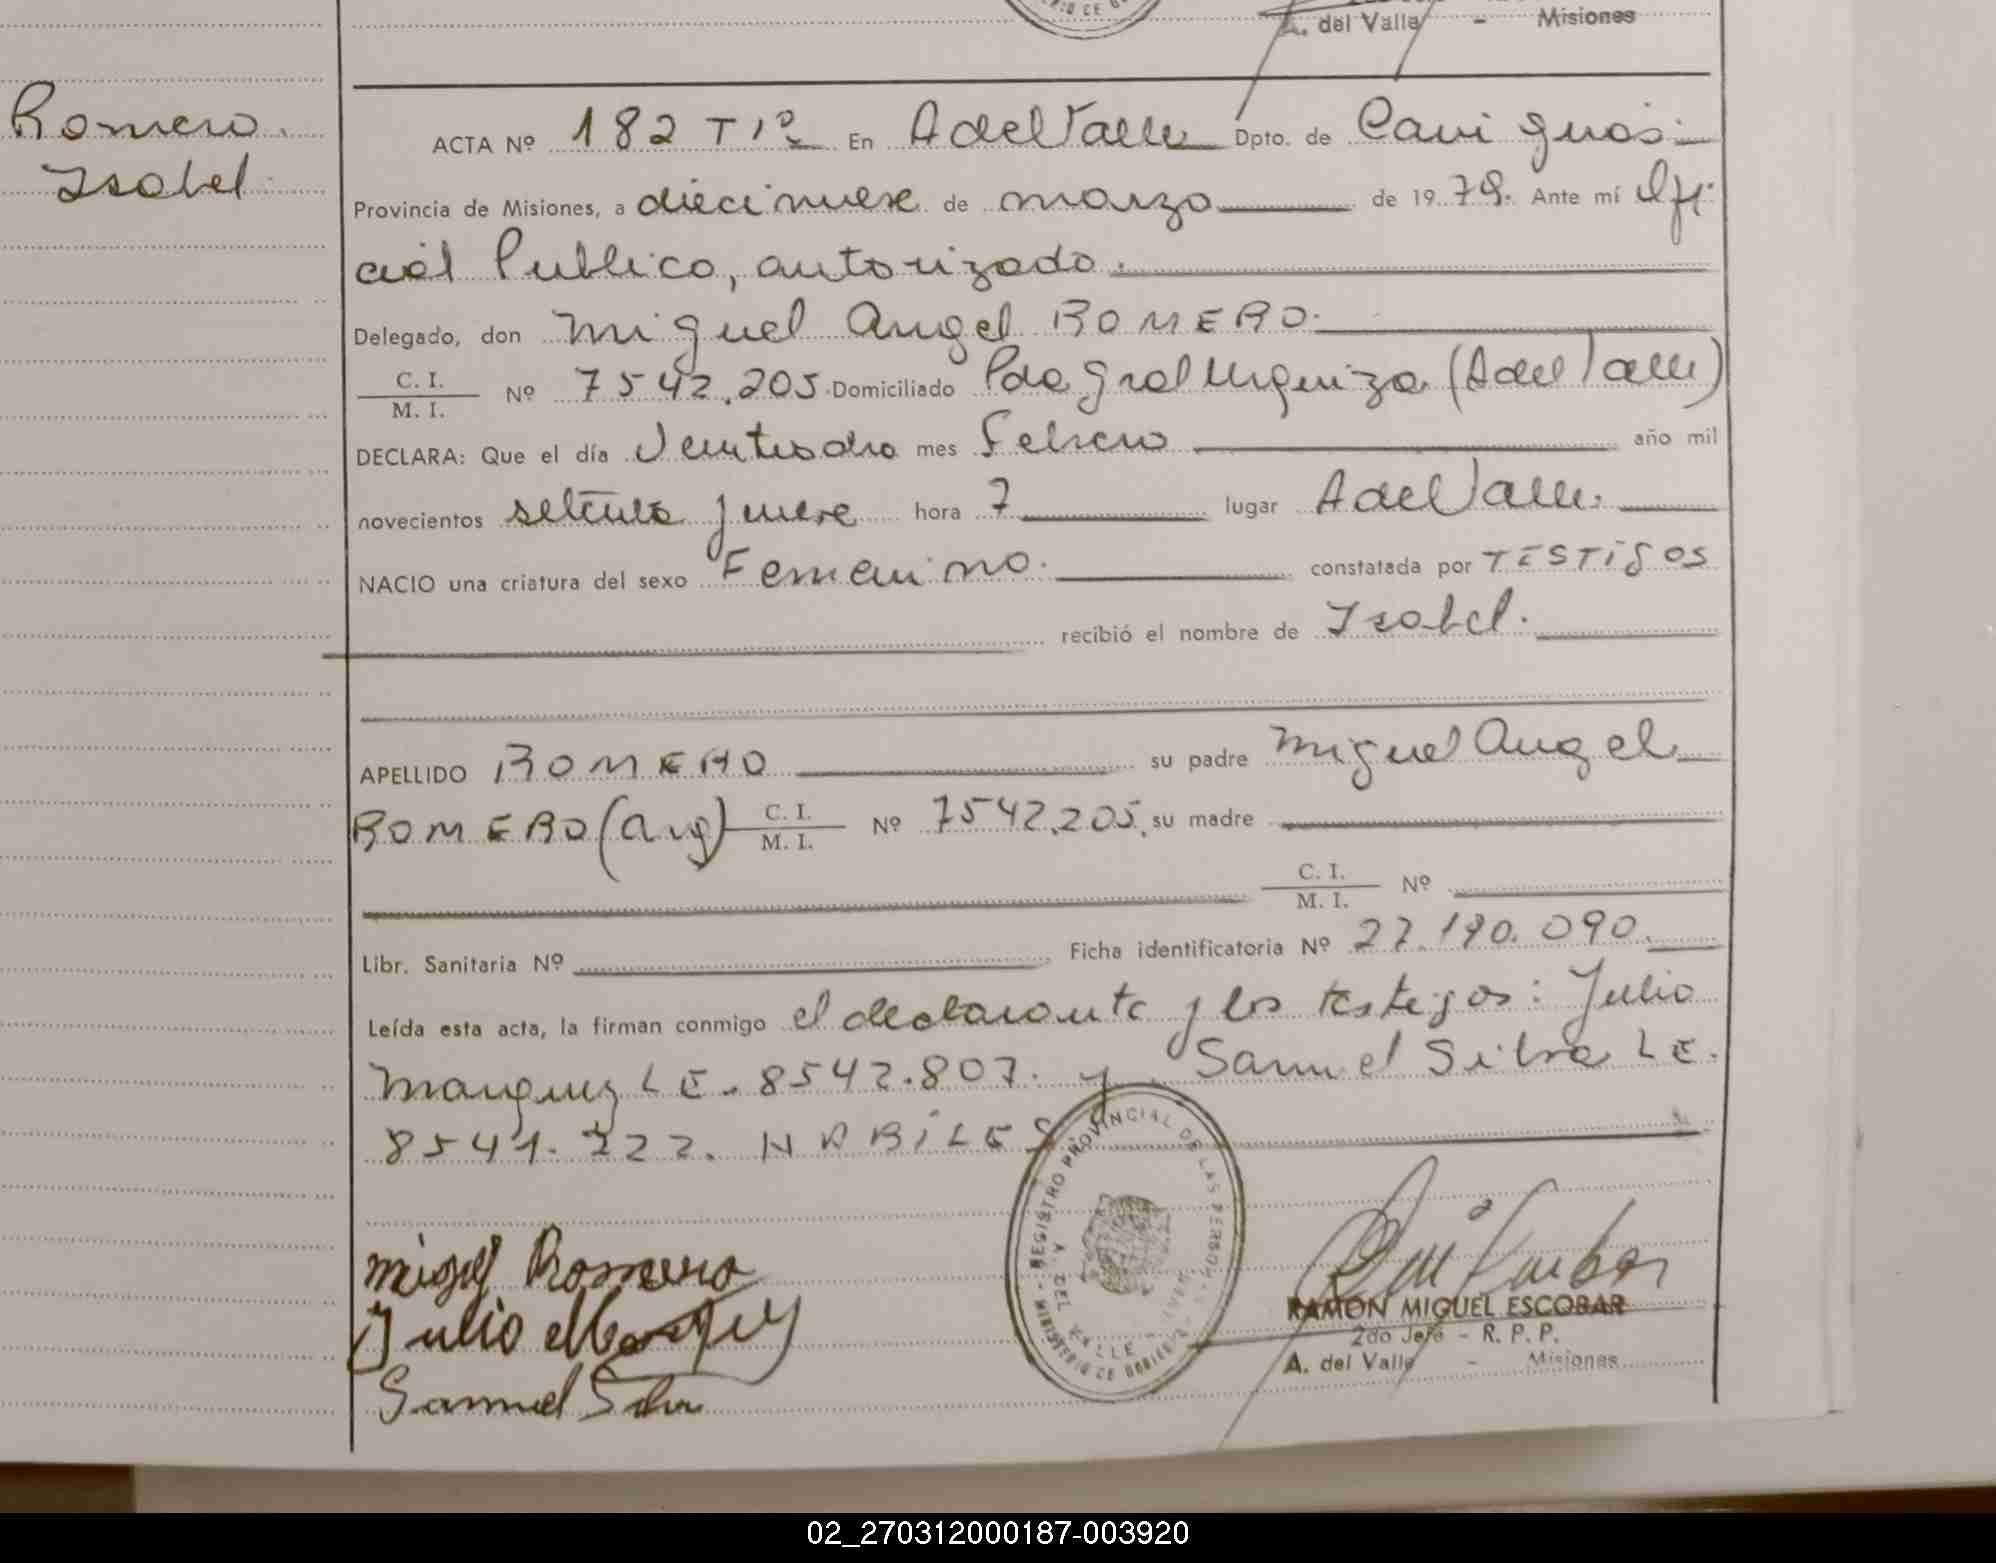 A. del Valle - Misiones
Romero
Isabel
ACTA Nº 182 T 1º En A del Valle Dpto. de Cainguás
Provincia de Misiones, a diecinueve de marzo de 1979. Ante mí Ofi
cial Publico, autorizado.
Delegado, don Miguel Angel ROMERO.
C. I.
M. I. Nº 7542.205 Domiciliado Pdo Gral Urquiza (A del Valle)
DECLARA: Que el día Veintiocho mes Febrero año mil
novecientos setenta y nueve hora 7 lugar A del Valle.
NACIO una criatura del sexo Femenino. constatada por TESTIGOS
recibió el nombre de Isabel.
APELLIDO ROMERO su padre Miguel Angel
ROMERO (Arg) C. I.
M. I. Nº 7542.205, su madre
C. I.
M. I. Nº
Libr. Sanitaria Nº Ficha identificatoria Nº 27.190.090.
Leída esta acta, la firman conmigo el declarante y los testigos: Julio
Marquez LE. 8542.807. y Samuel Silva LE.
8541.222. HABILES
REGISTRO PROVINCIAL DE LAS PERSONAS
A. DEL VALLE
MINISTERIO DE GOBIERNO
Miguel Romero
Julio Marquez
Samuel Silva
RAMON MIGUEL ESCOBAR
2do Jefe - R. P. P.
A. del Valle - Misiones
02_270312000187-003920